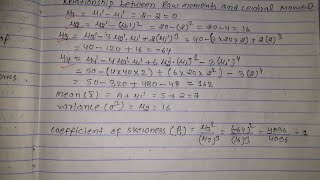 Relationship between Raw moments and central moment
μ₁ = μ₁' - μ₁' = 2-2 = 0
μ₂ = μ₂' - (μ₁')² = 20-(2)² = 20-4 = 16
μ₃ = μ₃' - 3 μ₂' μ₁' + 2(μ₁')³ = 40-(3×20×2) + 2(2)³
= 40-120+16 = -64
μ₄ = μ₄' - 4 μ₃' μ₁' + 6 μ₂' (μ₁')² - 3(μ₁')⁴
= 50-(4×40×2) + (6×20×2²) - 3(2)⁴
= 50-320+480-48 = 162
mean (x̄) = A + μ₁' = 5+2 = 7
variance (σ²) = μ₂ = 16
coefficient of skewness (β₁) = μ₃²/(μ₂)³ = (-64)²/(16)³ = 4096/4096 = 1